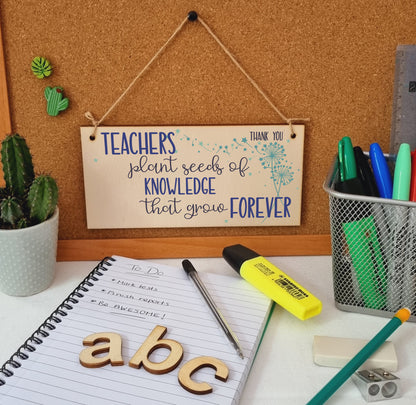 THANK YOU
TEACHERS
plant seeds of
KNOWLEDGE
that grow FOREVER
To Do
* Mark tests
* Finish reports
* Be AWESOME!
abc